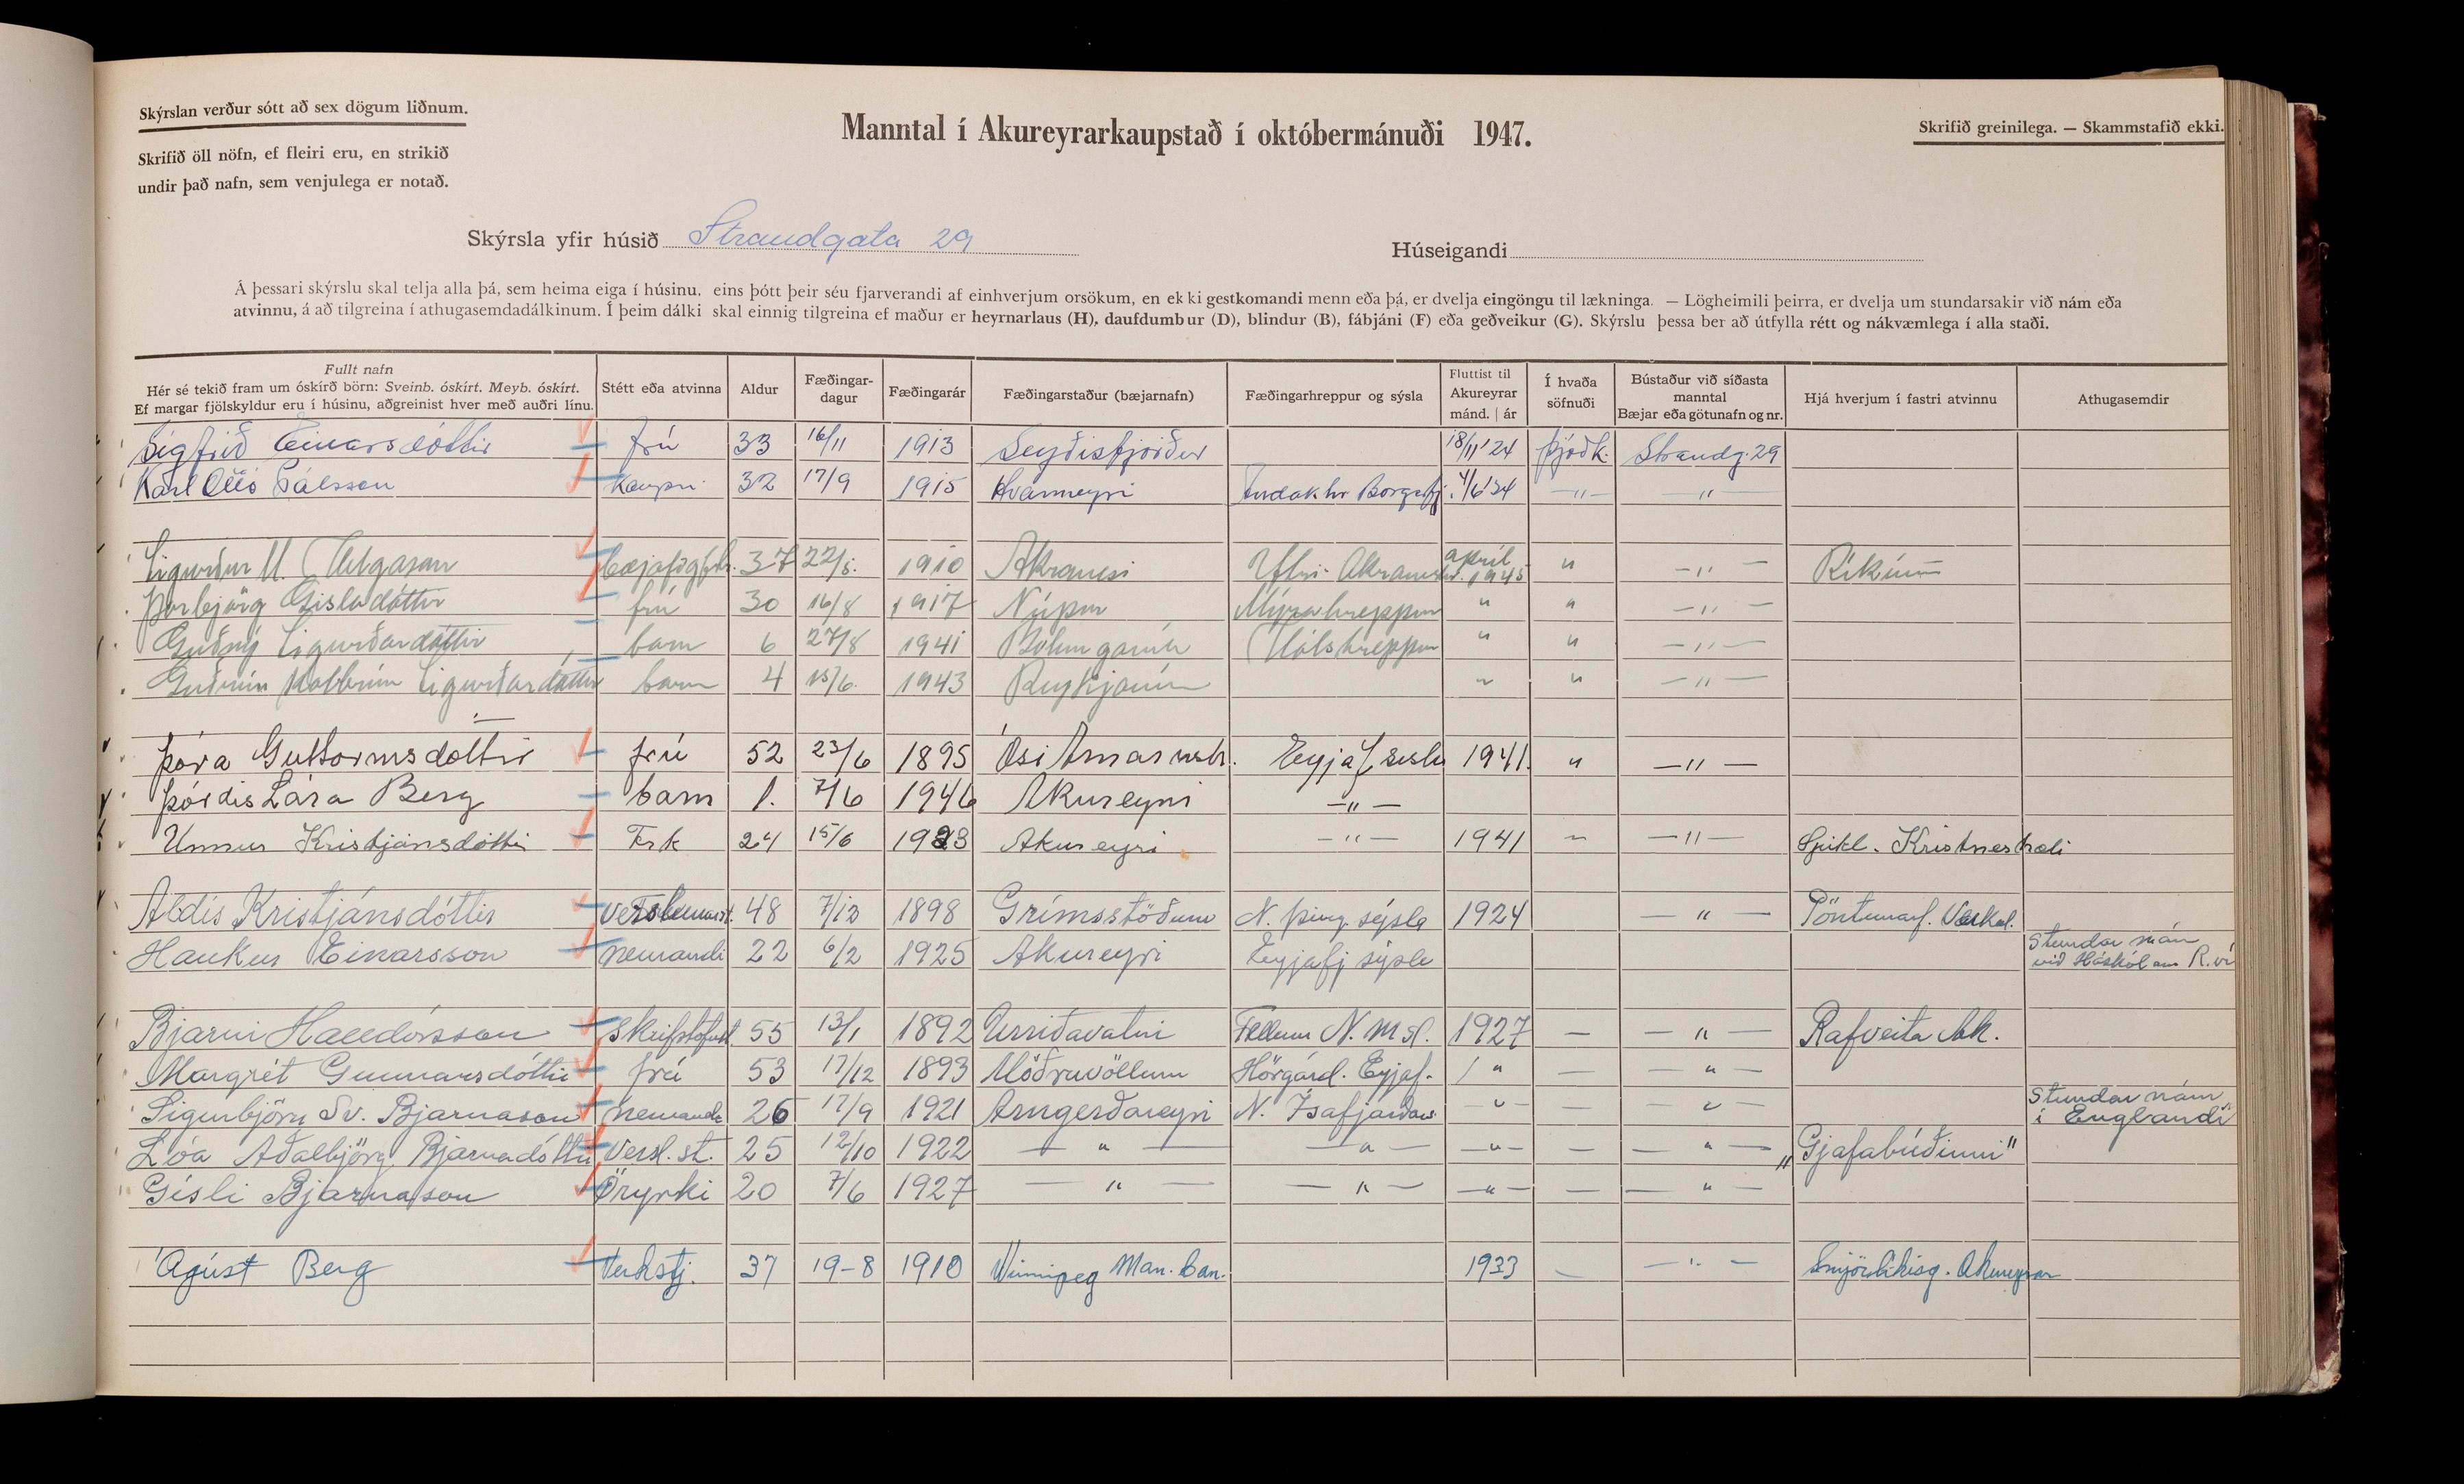 Skýrslan verður sótt að sex dögum liðnum.
Skrifið öll nöfn, ef fleiri eru, en strikið
undir það nafn, sem venjulega er notað.
Manntal í Akureyrarkaupstað í októbermánuði 1947.
Skrifið greinilega. — Skammstafið ekki.
Skýrsla yfir húsið Strandgata 29
Húseigandi
Á þessari skýrslu skal telja alla þá, sem heima eiga í húsinu, eins þótt þeir séu fjarverandi af einhverjum orsökum, en ekki gestkomandi menn eða þá, er dvelja eingöngu til lækninga. — Lögheimili þeirra, er dvelja um stundarsakir við nám eða
atvinnu, á að tilgreina í athugasemdadálkinum. Í þeim dálki skal einnig tilgreina ef maður er heyrnarlaus (H), daufdumbur (D), blindur (B), fábjáni (F) eða geðveikur (G). Skýrslu þessa ber að útfylla rétt og nákvæmlega í alla staði.
Fullt nafn
Hér sé tekið fram um óskírð börn: Sveinb. óskírt. Meyb. óskírt.
Ef margar fjölskyldur eru í húsinu, aðgreinist hver með auðri línu.
Stétt eða atvinna
Aldur
Fæðingar-
dagur
Fæðingarár
Fæðingarstaður (bæjarnafn)
Fæðingarhreppur og sýsla
Fluttist til
Akureyrar
mánd. | ár
Í hvaða
söfnuði
Bústaður við síðasta
manntal
Bæjar eða götunafn og nr.
Hjá hverjum í fastri atvinnu
Athugasemdir
Sigfríð Einarsdóttir frú 33 16/11 1913 Seyðisfjörður 18/11 '24 Þjóðk. Strandg. 29
Karl Ottó Pálsson Kaupm. 32 17/9 1915 Hvanneyri Andakhr Borgafj. 4/6 '34 — " — — " —
Sigurður M. Helgason bæjarfógftr. 37 22/8. 1910 Akranesi Ytri-Akraneshr. apríl 1945 " — " — Ríkinu
Þorbjörg Gísladóttir frú 30 16/8 1917 Núpur Mýrahreppur " " — " —
Guðný Sigurðardóttir barn 6 27/8 1941 Bolungarvík Hólshreppur " " — " —
Guðrún Sigurðardóttir barn 4 15/6. 1943 Reykjavík " " — " —
Þóra Guttormsdóttir frú 52 23/6 1895 Ósi Arnarneshr. Eyjafj sýslu 1941. " — " —
Þórdís Lára Berg barn 1. 7/6 1946 Akureyri — " —
Unnur Kristjánsdóttir Frk 24 15/6 1923 Akureyri — " — 1941 " — " — Spítl. Kristneshæli
Aldís Kristjánsdóttir Verslunarst. 48 7/12 1898 Grímsstöðum N. Þing. sýsla 1924 — " — Pöntunarf. Verkal.
Haukur Einarsson nemandi 22 6/2 1925 Akureyri Eyjafj sýsla Stundar nám
við Háskólann R.vík
Bjarni Halldórsson Skrifstofust. 55 13/1 1892 Urriðavatni Fellum N. M sl. 1927 — — " — Rafveita Ak.
Margrét Gunnarsdóttir frú 53 17/12 1893 Möðruvöllum Hörgárd. Eyjaf. " — — " —
Sigurbjörn Sv. Bjarnason nemandi 26 17/9 1921 Arngerðareyri N. Ísafjarðars. — " — — — " — Stundar nám
í Englandi
Lóa Aðalbjörg Bjarnadóttir Versl. st. 25 12/10 1922 — " — — " — — " — — — " — „Gjafabúðinni"
Gísli Bjarnason Öryrki 20 7/6 1927 — " — — " — — " — — — " —
Ágúst Berg Verkstj. 37 19-8 1910 Winnipeg Man. Can. 1933 — — " — Smjörlíkisg. Akureyrar